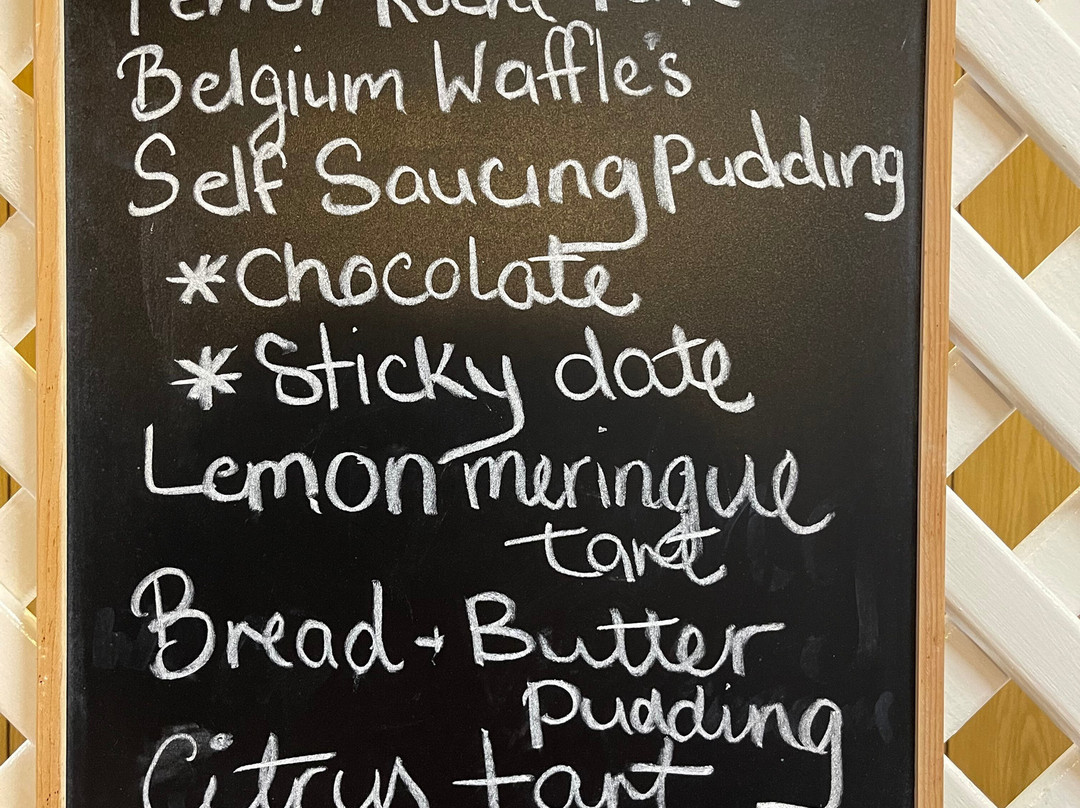 Belgium Waffle's
Self Saucing Pudding
*Chocolate
*Sticky date
Lemon meringue
tart
Bread + Butter
Pudding
Citrus tart